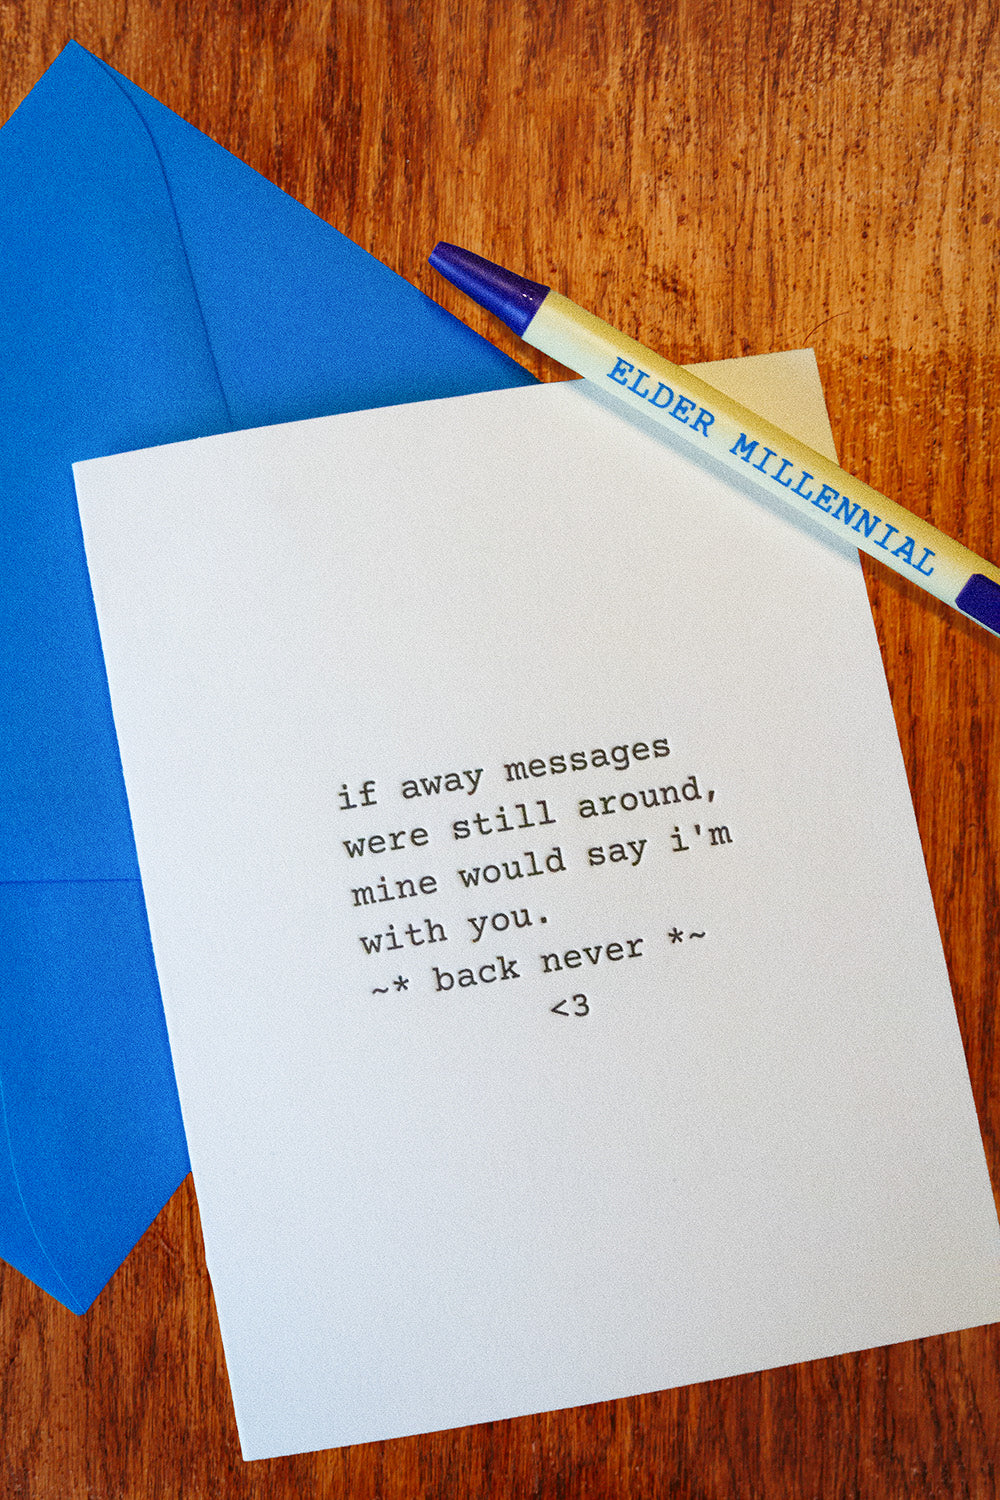 ELDER MILLENNIAL
if away messages
were still around,
mine would say i'm
with you.
~* back never *~
<3